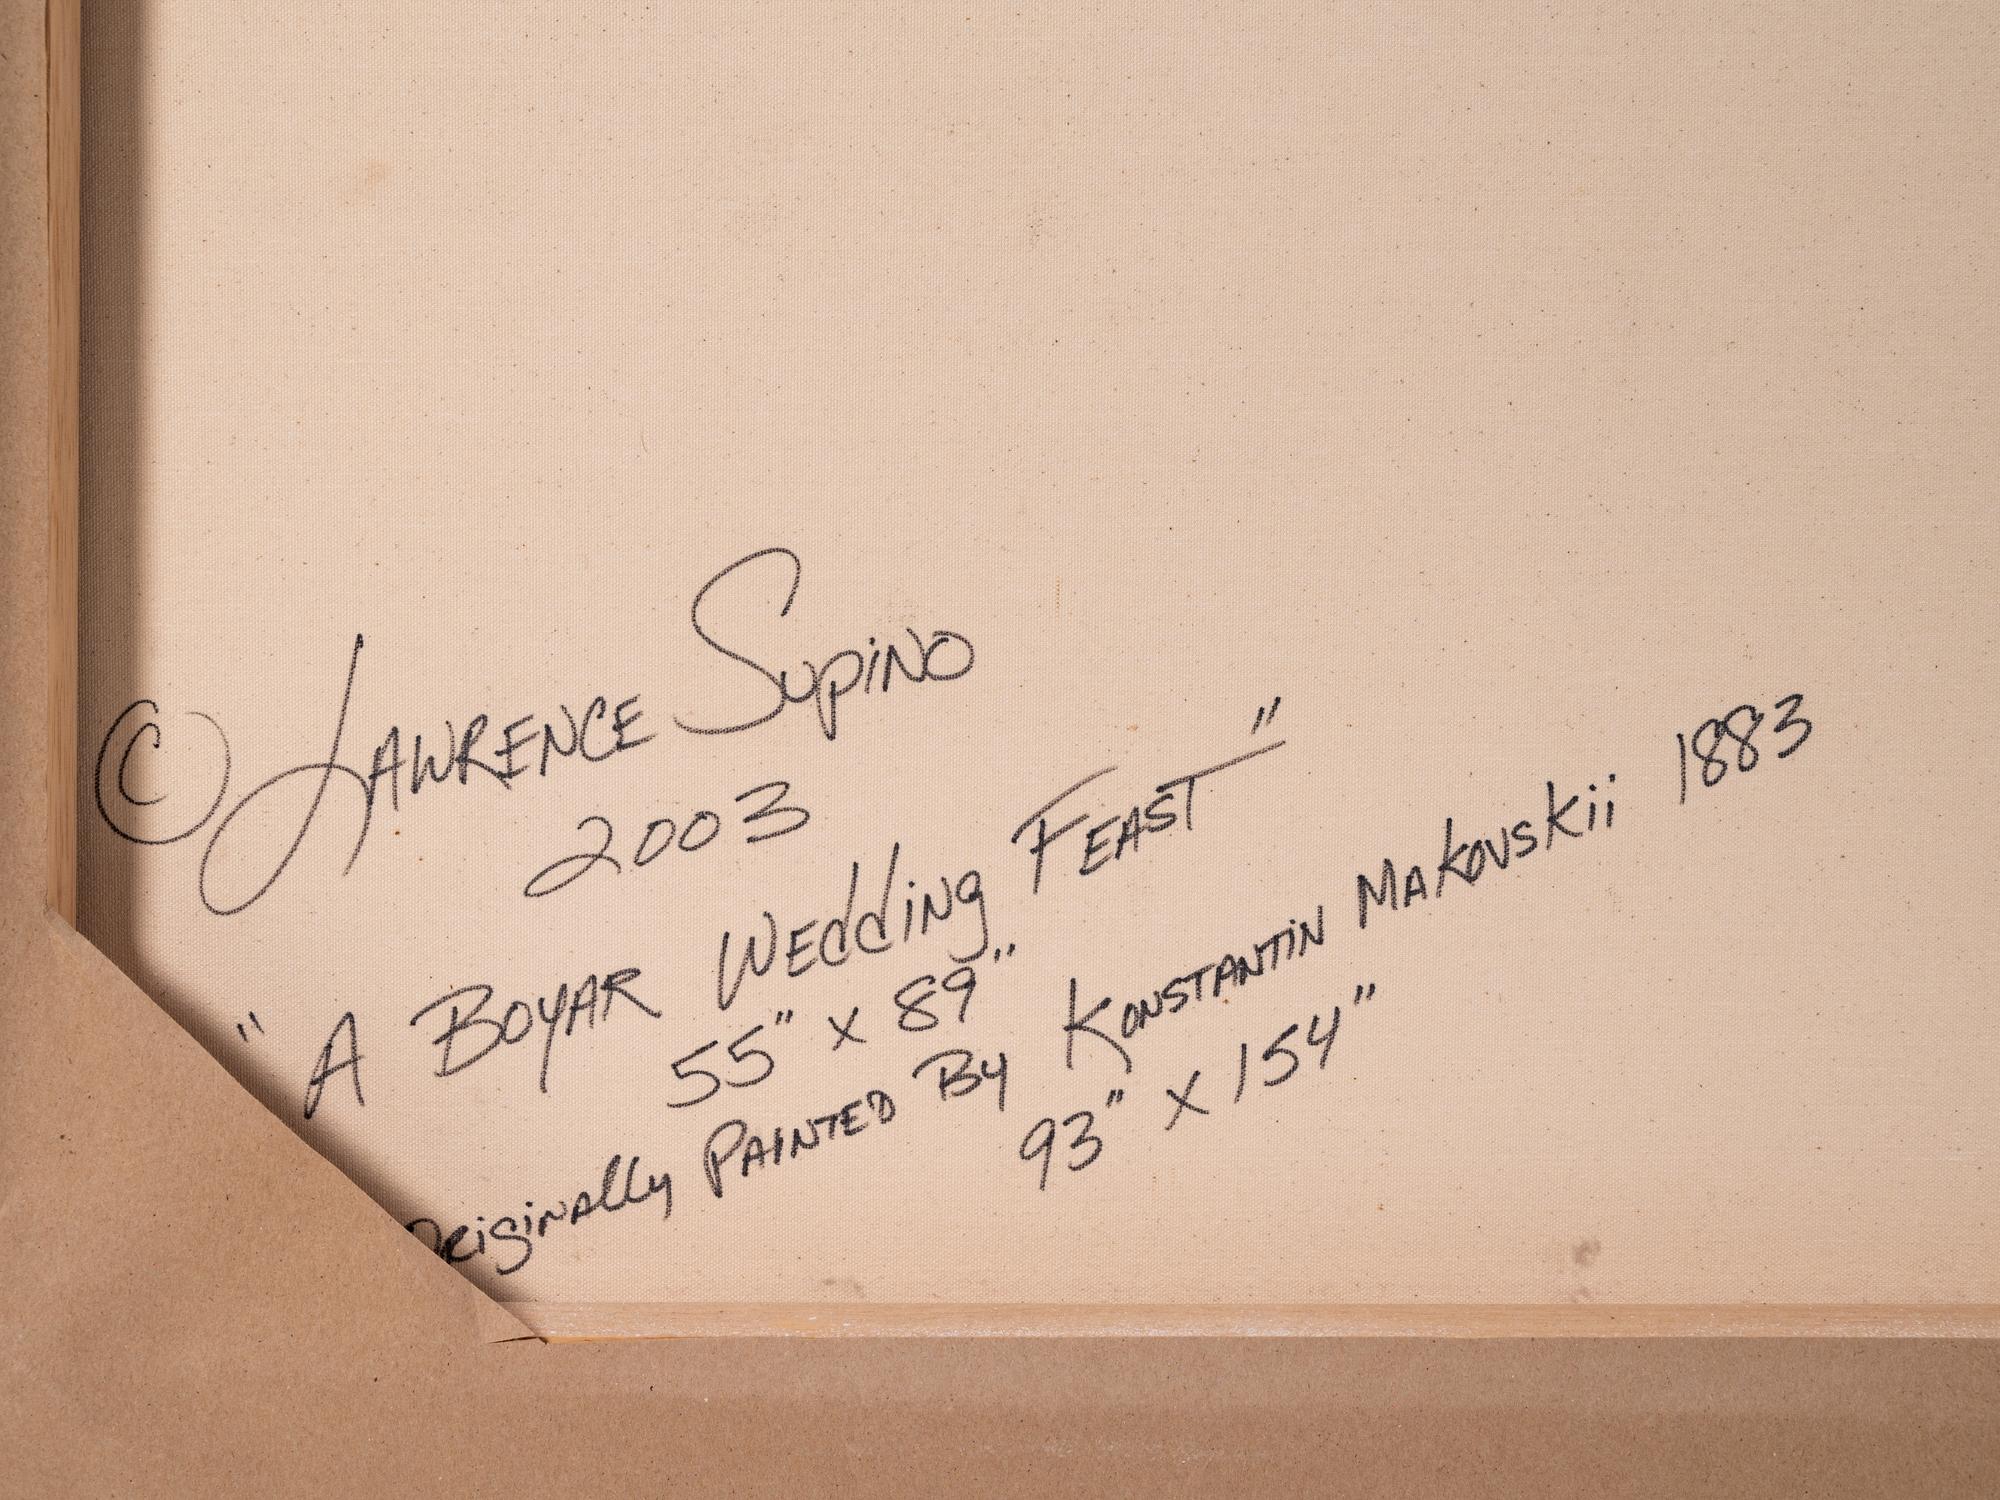 © Lawrence Supino
2003
"A Boyar Wedding Feast"
55" x 89"
Originally Painted By Konstantin Makovskii 1883
93" x 154"